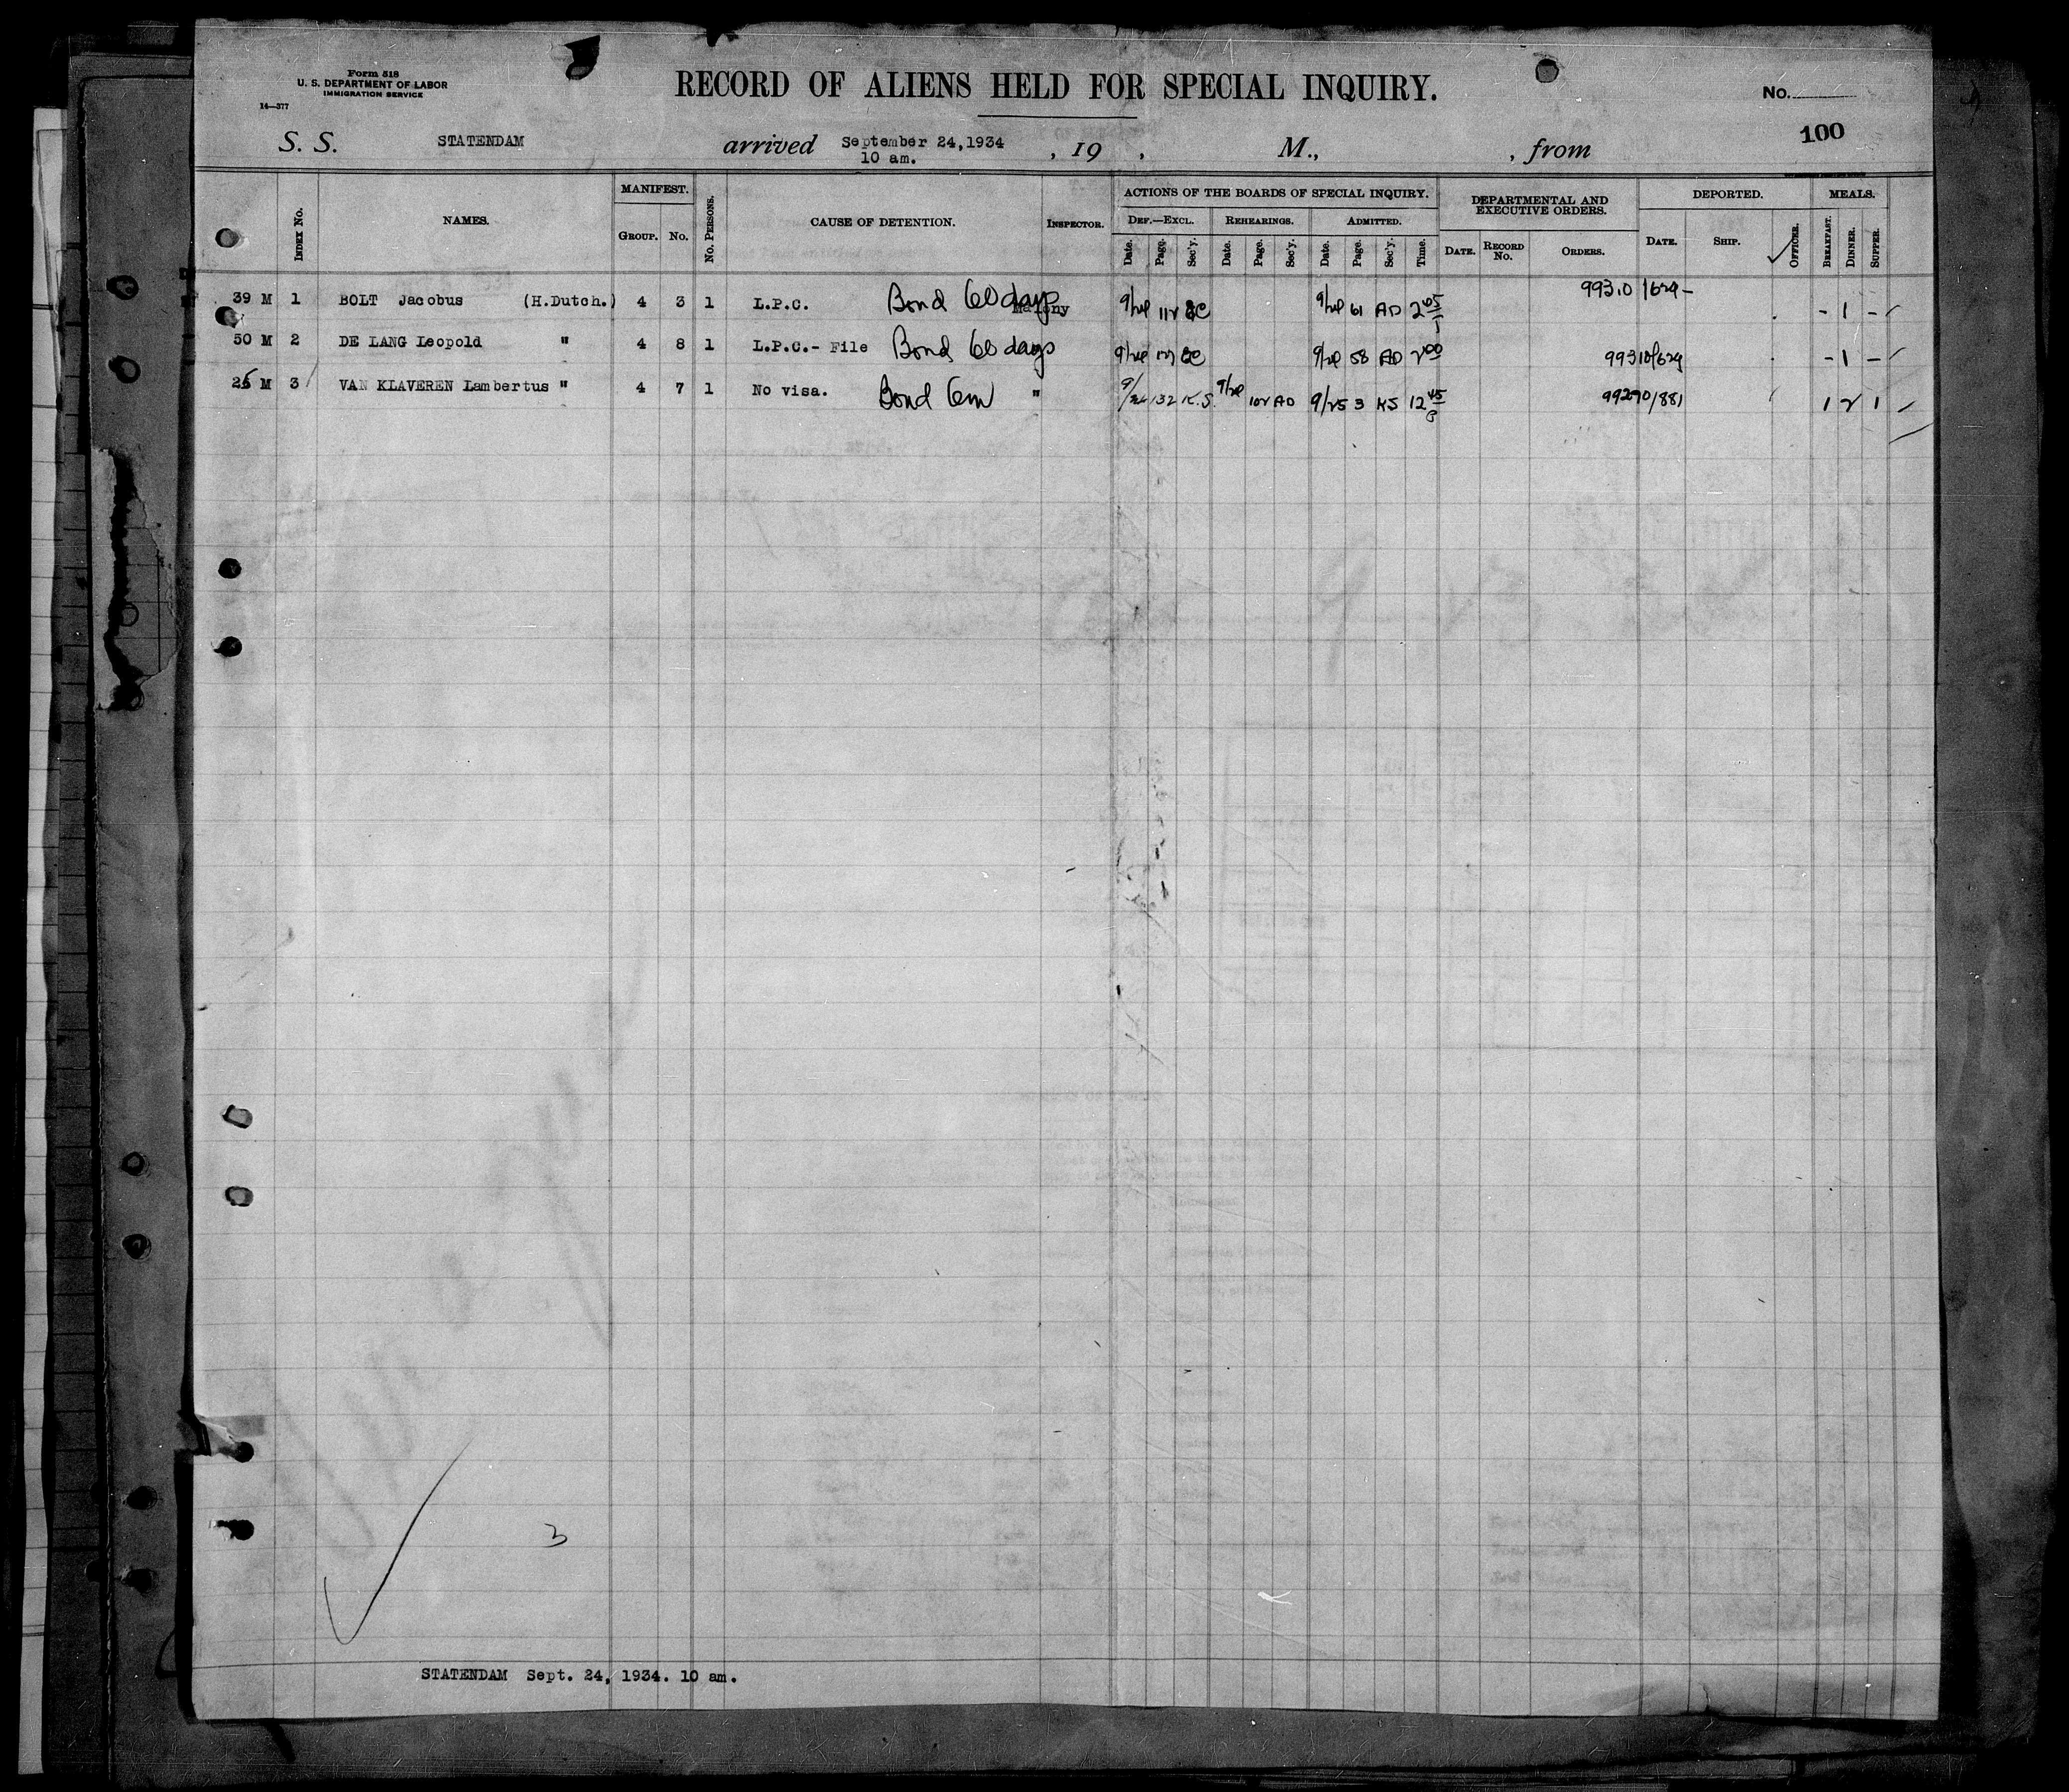 Form 518
U. S. DEPARTMENT OF LABOR
IMMIGRATION SERVICE
14—377
RECORD OF ALIENS HELD FOR SPECIAL INQUIRY.
No.
100
S. S. STATENDAM arrived September 24,1934 , 19 , M., , from
10 am.
INDEX NO. NAMES. MANIFEST. GROUP. NO. NO. PERSONS. CAUSE OF DETENTION. INSPECTOR. ACTIONS OF THE BOARDS OF SPECIAL INQUIRY. DEPARTMENTAL AND EXECUTIVE ORDERS. DEPORTED. MEALS.
DEF.—EXCL. REHEARINGS. ADMITTED.
Date. Page. Sec'y. Date. Page. Sec'y. Date. Page. Sec'y. Time. DATE. RECORD No. ORDERS. DATE. SHIP. OFFICER. BREAKFAST. DINNER. SUPPER.
39 M 1 BOLT Jacobus (H.Dutch.) 4 3 1 L.P.C. Bond 60 days 9/24 112 9/24 61 AD 2 05 99310/629 - 1 -
50 M 2 DE LANG Leopold " 4 8 1 L.P.C.- File Bond 60 days 9/24 9/24 58 AD 2 00 99310/629 - 1 -
M 3 VAN KLAVEREN Lambertus " 4 7 1 No visa. Bond 6m " 9/24 132 K.S. 9/24 102 AD 9/25 3 KS 12 45 99290/881 1 2 1
3
STATENDAM Sept. 24, 1934. 10 am.